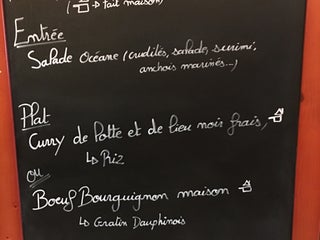 (fait maison)
Entrée
Salade Océane (crudités, salade, surimi,
anchois marinés...)
Plat
Curry de Lotte et de lieu noir frais,
↳ Riz
ou
Boeuf Bourguignon maison
↳ Gratin Dauphinois